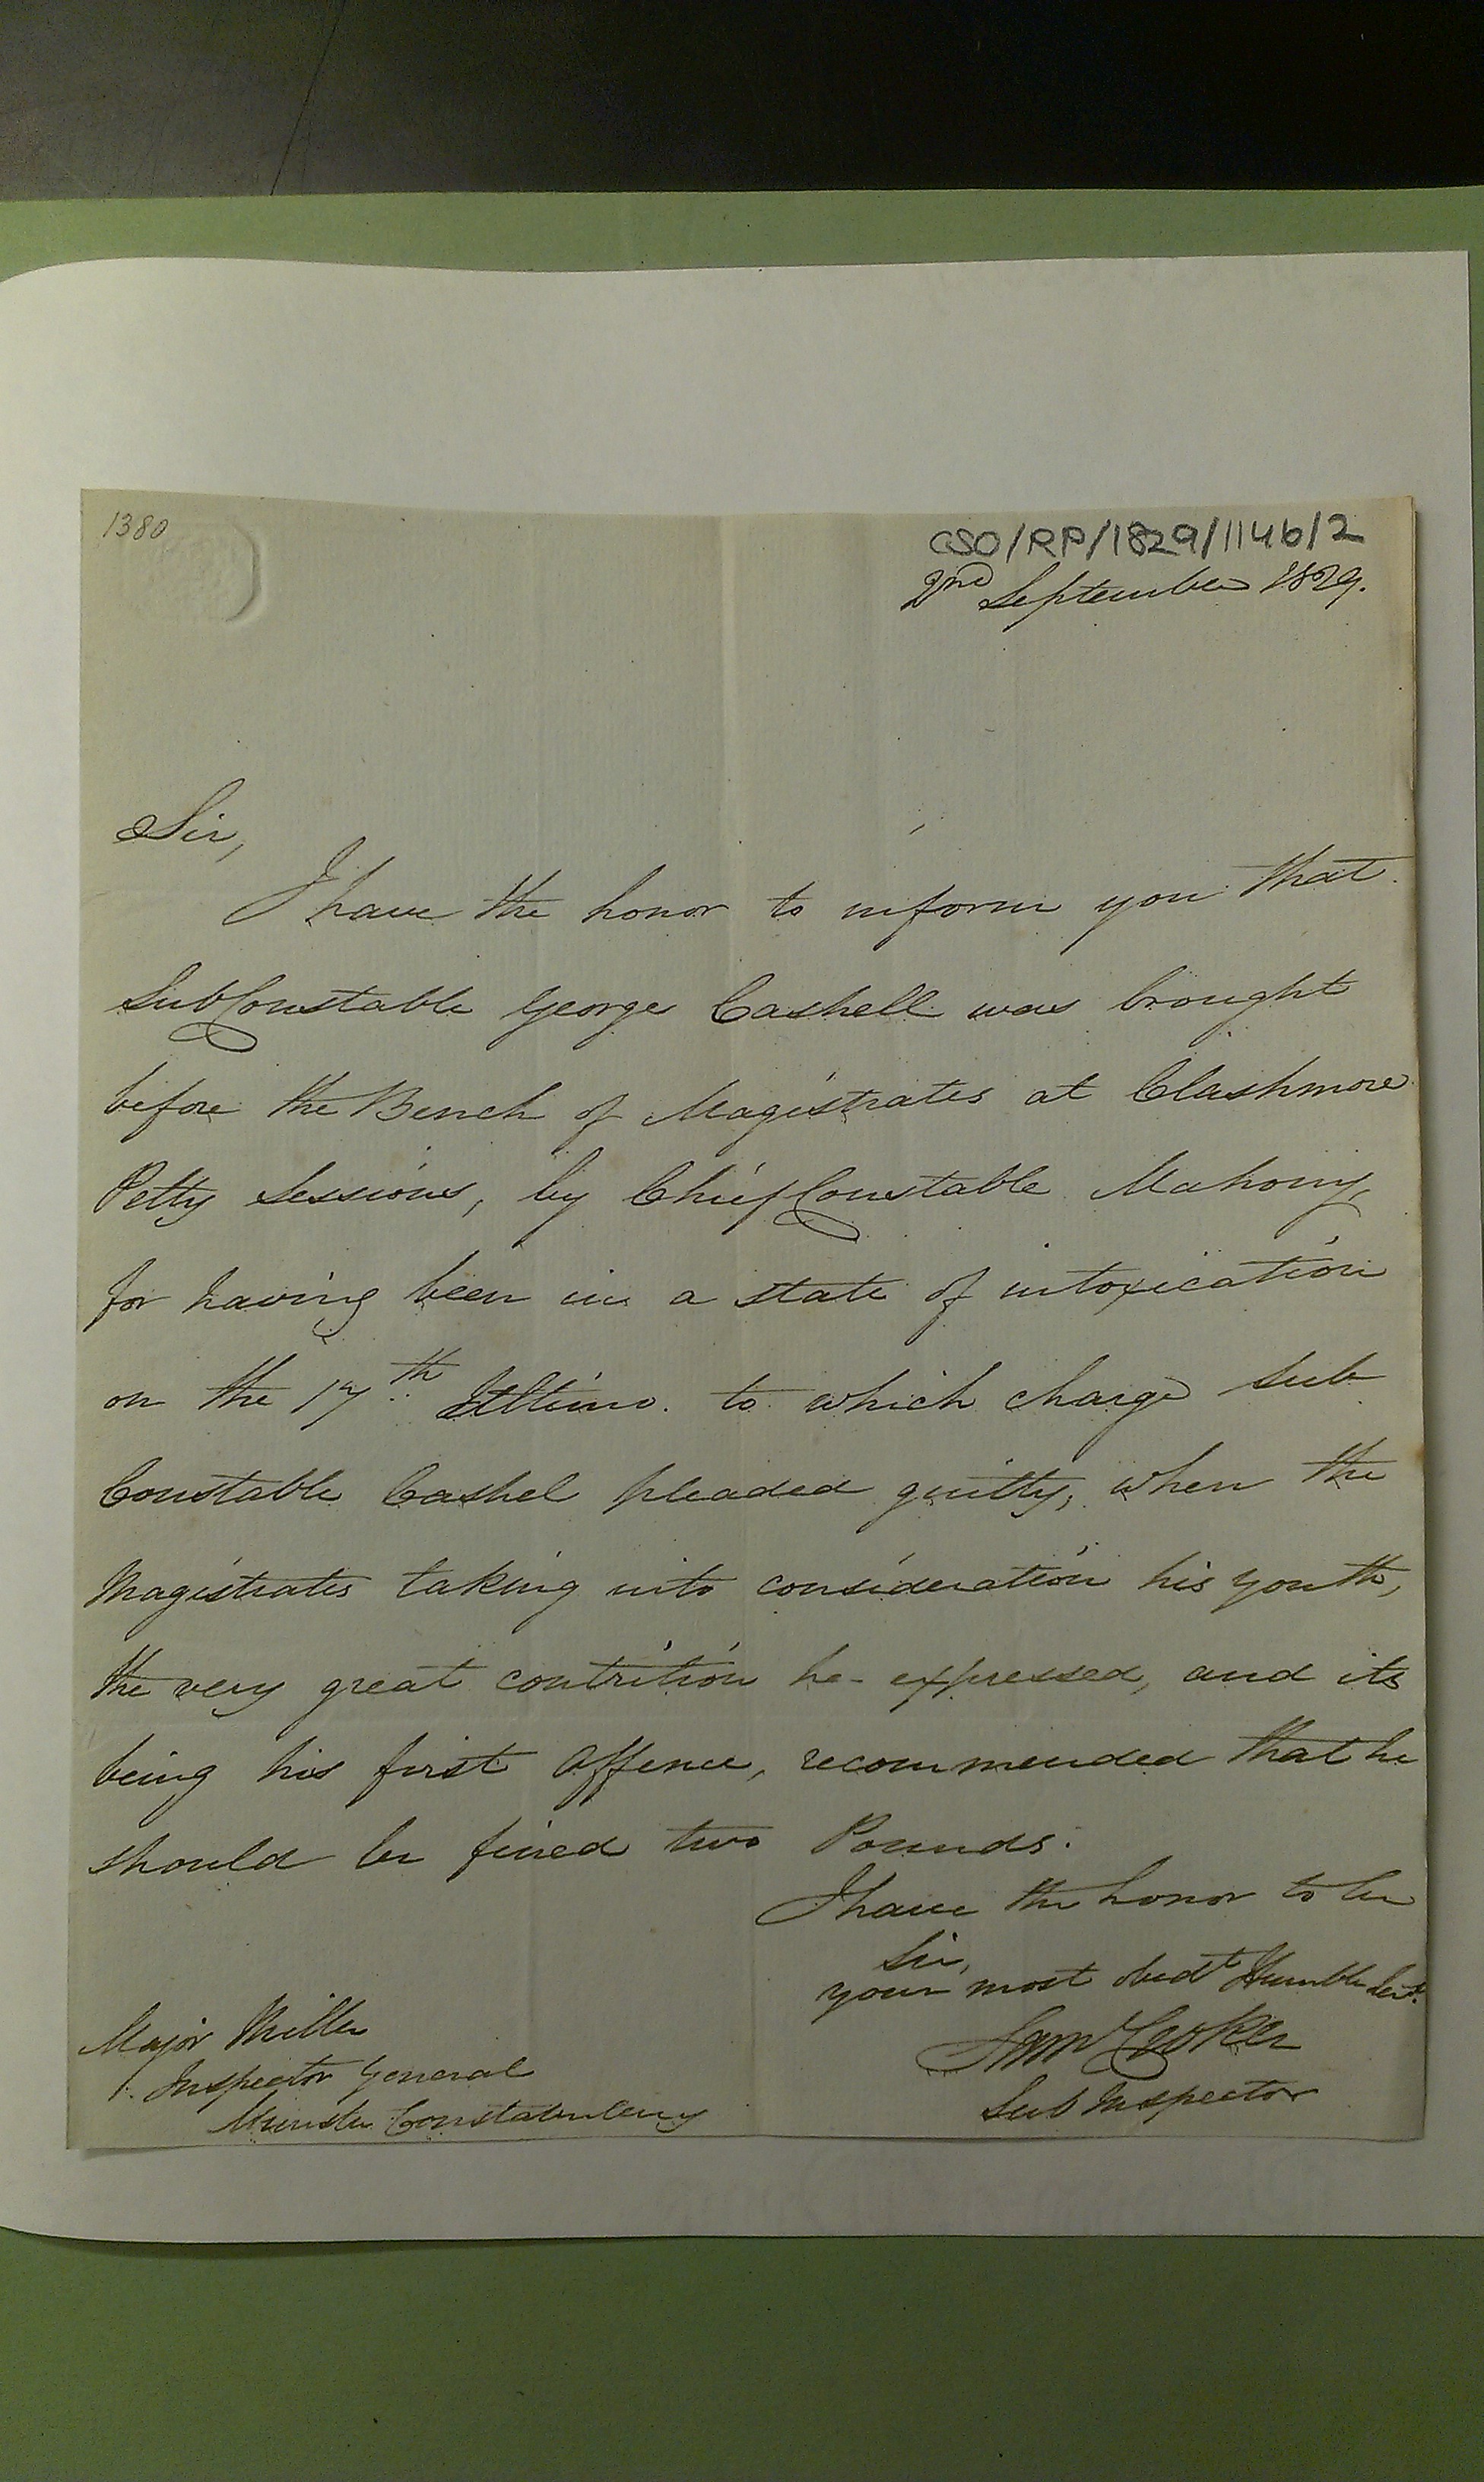 1380
CSO/RP/1829/1146/2
2nd September 1829.
Sir,
I have the honor to inform you that
SubConstable George Cashell was brought
before the Bench of Magistrates at Clashmore
Petty Sessions, by Chief Constable Mahony,
for having been in a state of intoxication
on the 17th Ultimo. to which charge Sub
Constable Cashel pleaded guilty, when the
Magistrates taking into consideration his youth,
the very great contrition he expressed, and its
being his first offence, recommended that he
should be fined two Pounds.
I have the honor to be
Sir,
your most obedt Humble Sert.
Saml Croker
Sub Inspector
Major Miller
Inspector General
Munster Constabulary